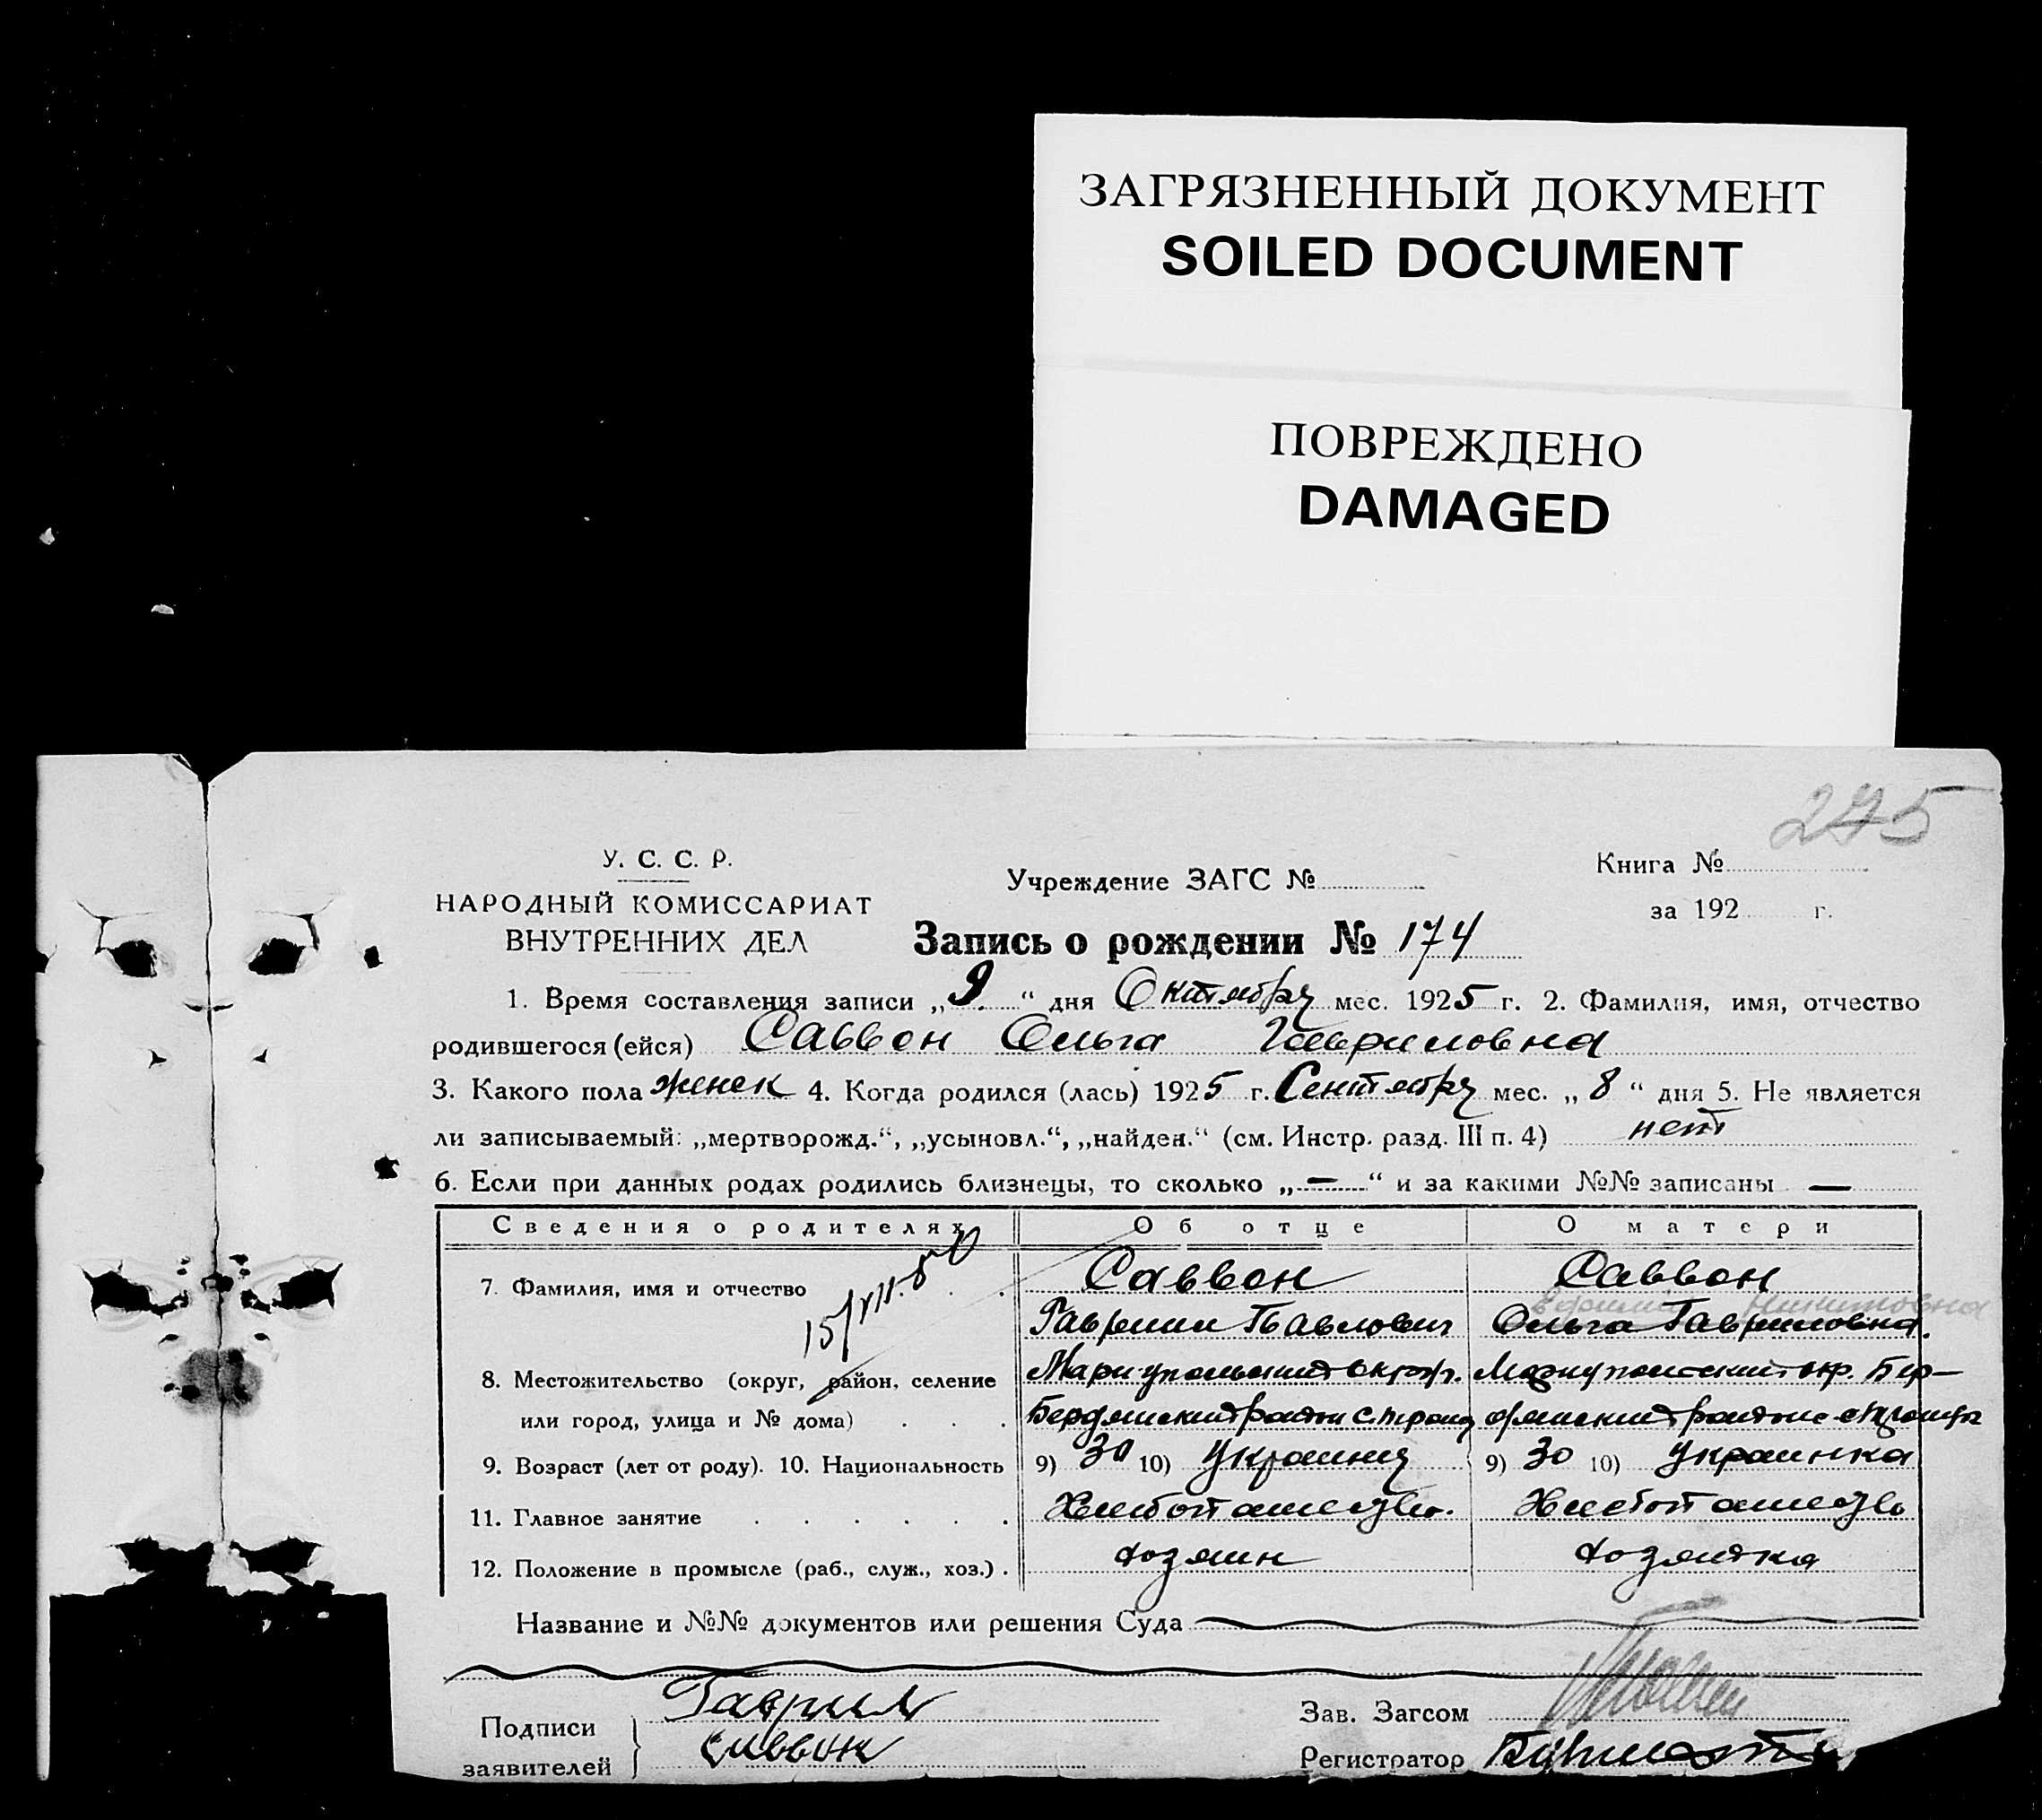 ЗАГРЯЗНЕННЫЙ ДОКУМЕНТ
SOILED DOCUMENT
ПОВРЕЖДЕНО
DAMAGED
275
У. С. С. Р.
НАРОДНЫЙ КОМИССАРИАТ
ВНУТРЕННИХ ДЕЛ
Учреждение ЗАГС №
Книга №
за 192 г.
Запись о рождении № 174
1. Время составления записи „ 9 “ дня Октября мес. 1925 г. 2. Фамилия, имя, отчество
родившегося (ейся) Саввон Ольга Гавриловна
3. Какого пола женск 4. Когда родился (лась) 1925 г. Сентября мес. „ 8 “ дня 5. Не является
ли записываемый: „мертворожд.“, „усыновл.“, „найден.“ (см. Инстр. разд. III п. 4) нет
6. Если при данных родах родились близнецы, то сколько „ — “ и за какими №№ записаны —
Сведения о родителях Об отце О матери
7. Фамилия, имя и отчество Саввон Саввон
Никитовна
Гавриил Павлович Ольга Гавриловна.
8. Местожительство (округ, район, селение Мариупольский окр. Мариупольский окр. Бер-
или город, улица и № дома) Бердянский район с. дянский район с.
9. Возраст (лет от роду). 10. Национальность 9) 30 10) Украинец 9) 30 10) Украинка
11. Главное занятие Хлебопашество. Хлебопашество
12. Положение в промысле (раб., служ., хоз.) хозяин хозяйка
Название и №№ документов или решения Суда
Подписи
заявителей
Гавриил
Саввон
Зав. Загсом
Регистратор